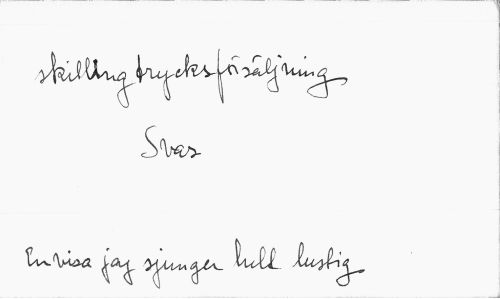 skillingtrycksförsäljning
Svar
En visa jag sjunger helt lustig